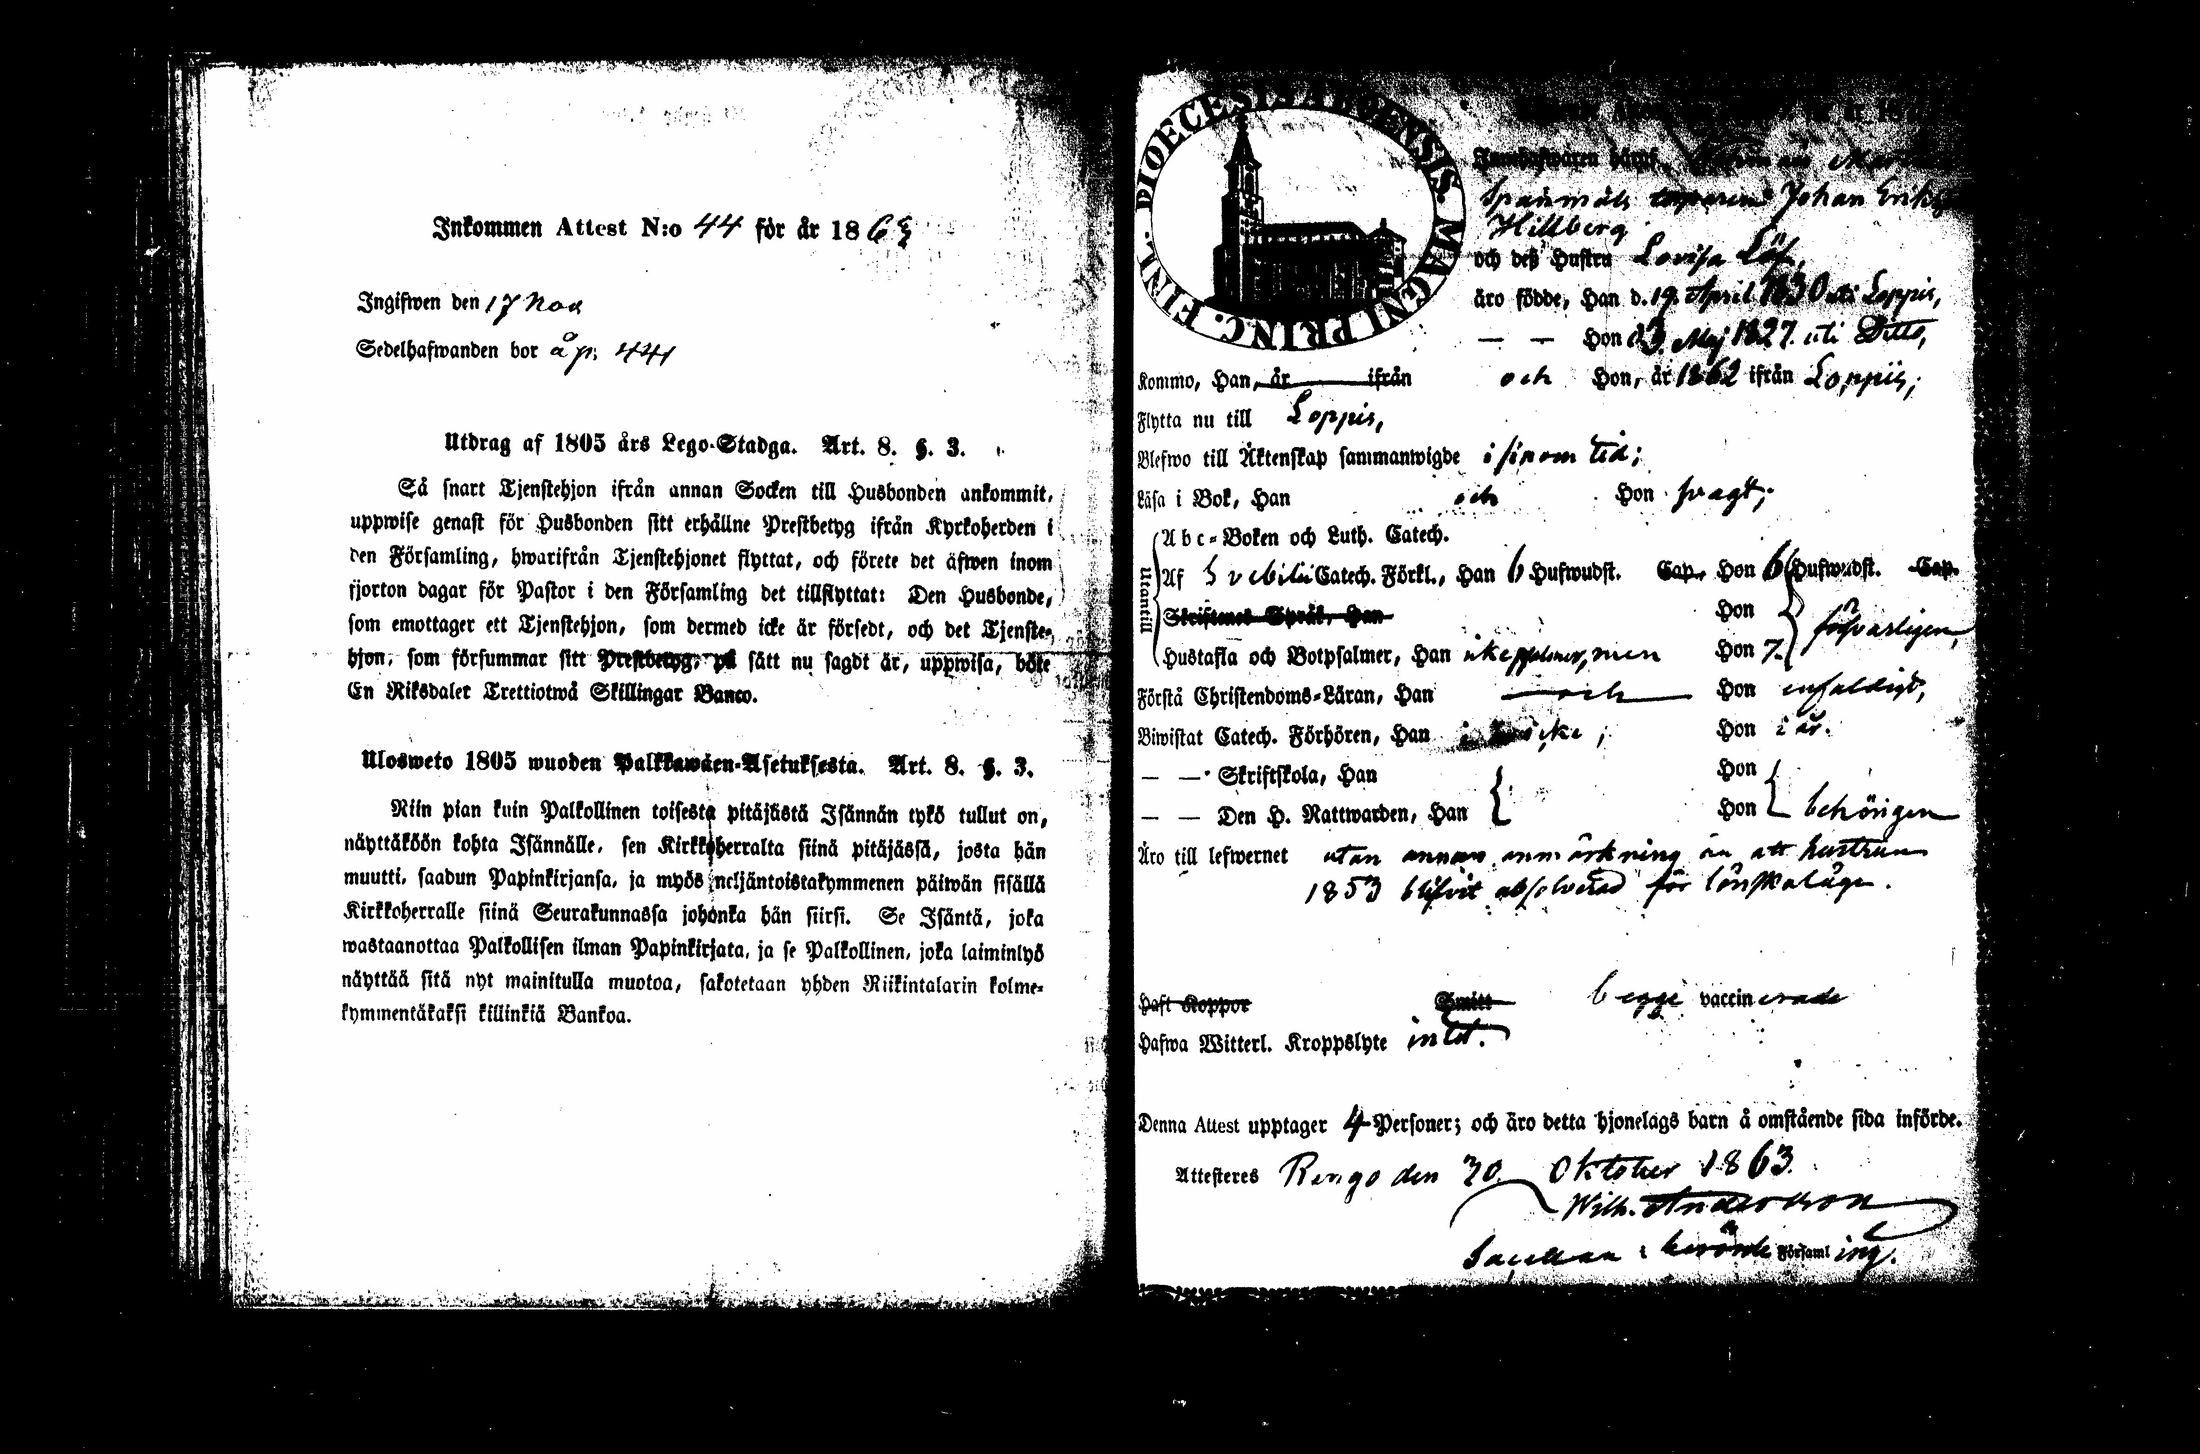 Inkommen Attest N:o 44 för år 1863
Ingifwen den 17 Nov
Sedelhafwanden bor å p. 441
Utdrag af 1805 års Lego-Stadga. Art. 8. §. 3.
Så snart Tjenstehjon ifrån annan Socken till Husbonden ankommit,
uppwise genast för Husbonden sitt erhållne Prestbetyg ifrån Kyrkoherden i
den Församling, hwarifrån Tjenstehjonet flyttat, och förete det äfwen inom
fjorton dagar för Pastor i den Församling det tillflyttat: Den Husbonde,
som emottager ett Tjenstehjon, som dermed icke är försedt, och det Tjenste-
hjon, som försummar sitt Prestbetyg, på sätt nu sagdt är, uppwisa, böte
En Riksdaler Trettiotwå Skillingar Banco.
Ulosweto 1805 wuoden Palkkawäen-Asetuksesta. Art. 8. §. 3.
Niin pian kuin Palkollinen toisesta pitäjästä Isännän tykö tullut on,
näyttäköön kohta Isännälle, sen Kirkkoherralta siinä pitäjässä, josta hän
muutti, saadun Papinkirjansa, ja myös neljäntoistakymmenen päiwän sisällä
Kirkkoherralle siinä Seurakunnassa johonka hän siirsi. Se Isäntä, joka
wastaanottaa Palkollisen ilman Papinkirjata, ja se Palkollinen, joka laiminlyö
näyttää sitä nyt mainitulla muotoa, sakotetaan yhden Riikintalarin kolme-
kymmentäkaksi killinkiä Bankoa.
DIOECESIS ABOENSIS. MAGNI PRINC. FINL.
Innehafwaren häraf,
Spanmåls Johan
Hillberg
och deß Hustru Lovisa Löf,
äro födde, Han d. 19. April 1830 uti Loppis,
— — Hon d 3. Maj 1827. uti Ditto,
Kommo, Han, år ifrån och Hon, år 1862 ifrån Loppis;
Flytta nu till Loppis,
Blefwo till Äktenskap sammanwigde i sinom tid;
Läsa i Bok, Han och Hon svagt;
Utantill
Abc-Boken och Luth. Catech.
Af Svebilii Catech. Förkl., Han 6 Hufwudst. Cap., Hon 6 Hufwudst. Cap.
Skriftenes Språk, Han Hon försvarligen,
Hustafla och Botpsalmer, Han men Hon 7.
Förstå Christendoms-Läran, Han och Hon enfaldigt,
Biwistat Catech. Förhören, Han icke; Hon i år.
— — Skriftskola, Han Hon
— — Den H. Nattwarden, Han Hon behörigen
Äro till lefwernet utan annan anmärkning än att hustrun
1853 blifvit absolverad för lönskaläge.
Haft Koppor Smitt begge vaccinerade
Hafwa Witterl. Kroppslyte intet.
Denna Attest upptager 4 Personer; och äro detta hjonelags barn å omstående sida införde.
Attesteres Rengo den 30. Oktober 1863.
Wilh. Andersson
Sacellan i berörde Församling.